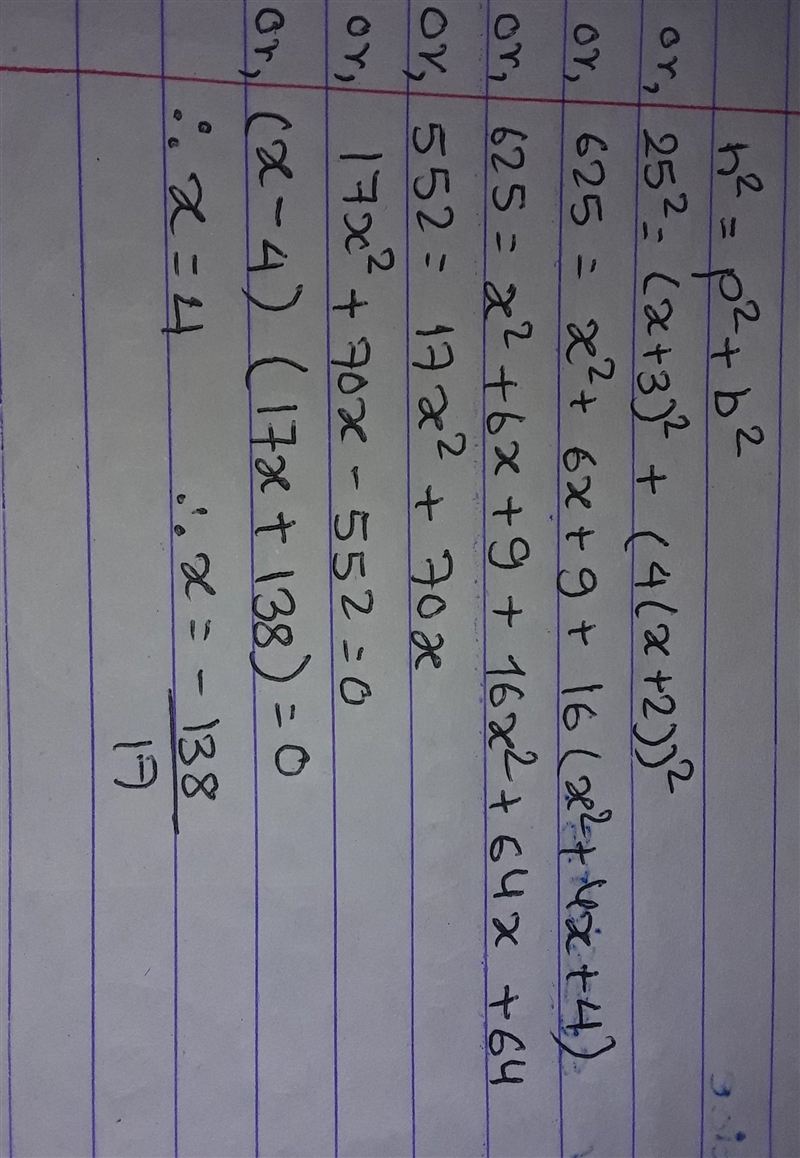 h² = p² + b²
or, 25² = (x+3)² + (4(x+2))²
or, 625 = x² + 6x + 9 + 16(x² + 4x + 4)
or, 625 = x² + 6x + 9 + 16x² + 64x + 64
or, 552 = 17x² + 70x
or, 17x² + 70x - 552 = 0
or, (x - 4) (17x + 138) = 0
∴ x = 4 ∴ x = -138/17